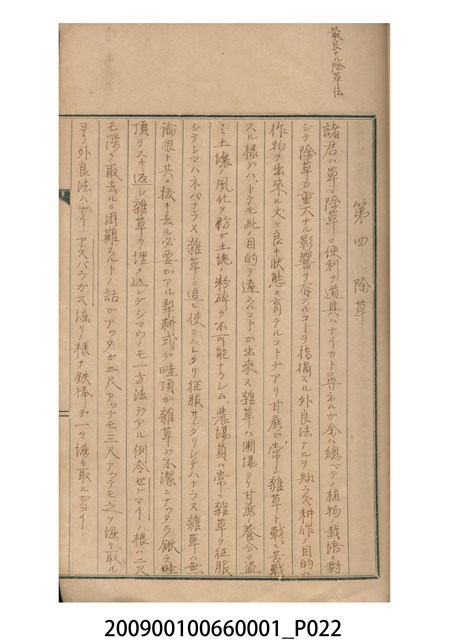 最良ナル除草法
第四 除草
諸君ハ単ニ除草ニ便利ナ道具ハナイカト尋ネルガ余ハ總ベテノ植物ノ栽培ニ対
シテ除草ガ重大ナル影響ヲ有スルコトヲ指摘スル外良法アルヲ知ラズ耕作ノ目的ハ
作物ヲ出来ル丈ケ良キ状態ニ育テルコトデアリ甘蔗ガ常ニ雑草ト戦ニ苦戦
スル様デハトテモ此ノ目的ヲ達スルコトガ出来ヌ雑草ハ圃場ヨリ甘蔗ノ養分ヲ盗
ミ土壌ノ風化ヲ妨ゲ土塊ノ粉砕ヲ不可能ナラシム農場員ハ常ニ雑草ヲ征服
シテシマハネバナラヌ雑草ニ追ヒ使ハレタリ征服サレタリシテハナラヌ雑草ハ無
論根トモニ抜キ去ル必要ガアル犂耕式デ畦頂ガ雑草デ不潔ニナツタラ鍬デ畦
頂ヲスキ返シ雑草ヲ埋メ込ンデシマウノモ一方法デアル例令ゼンマイノ根ハ二尺
モ深ク取去ルニ困難ナルトノ話ガアツタガ二尺アツテモ三尺アツテモ之ヲ掘リ取ル
ヨリ外良法ハナイアスパラガス掘リ様ナ鉄棒デ一々掘リ取ルガヨイ
200900100660001_P022